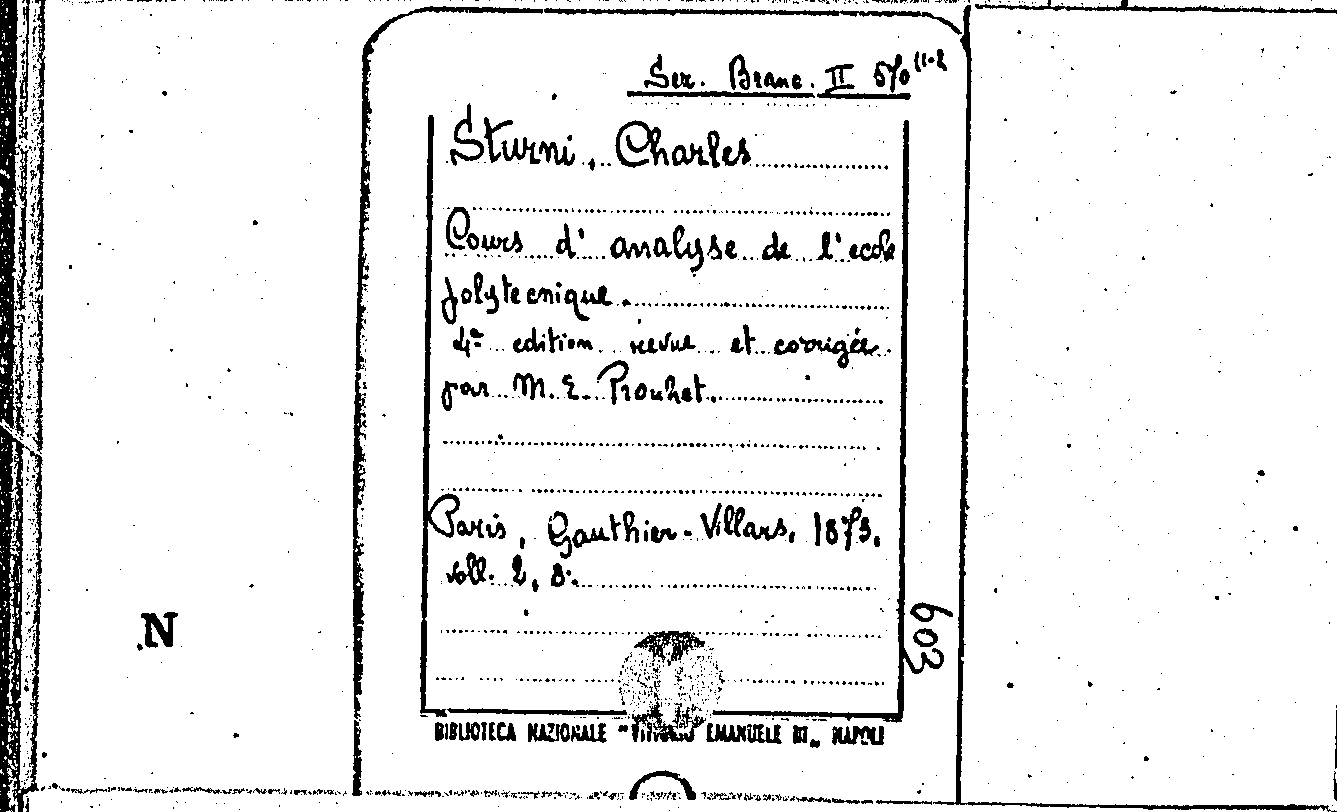 Ser. Branc. II 570 (1-2
Sturni, Charles
Cours d' analyse de l' ecole
polytecnique.
4e edition revue et corrigée
par M. E. Prouhet.
Paris, Gauthier-Villars, 1873.
voll. 2, 8°.
603
N
BIBLIOTECA NAZIONALE "VITTORIO EMANUELE III" NAPOLI